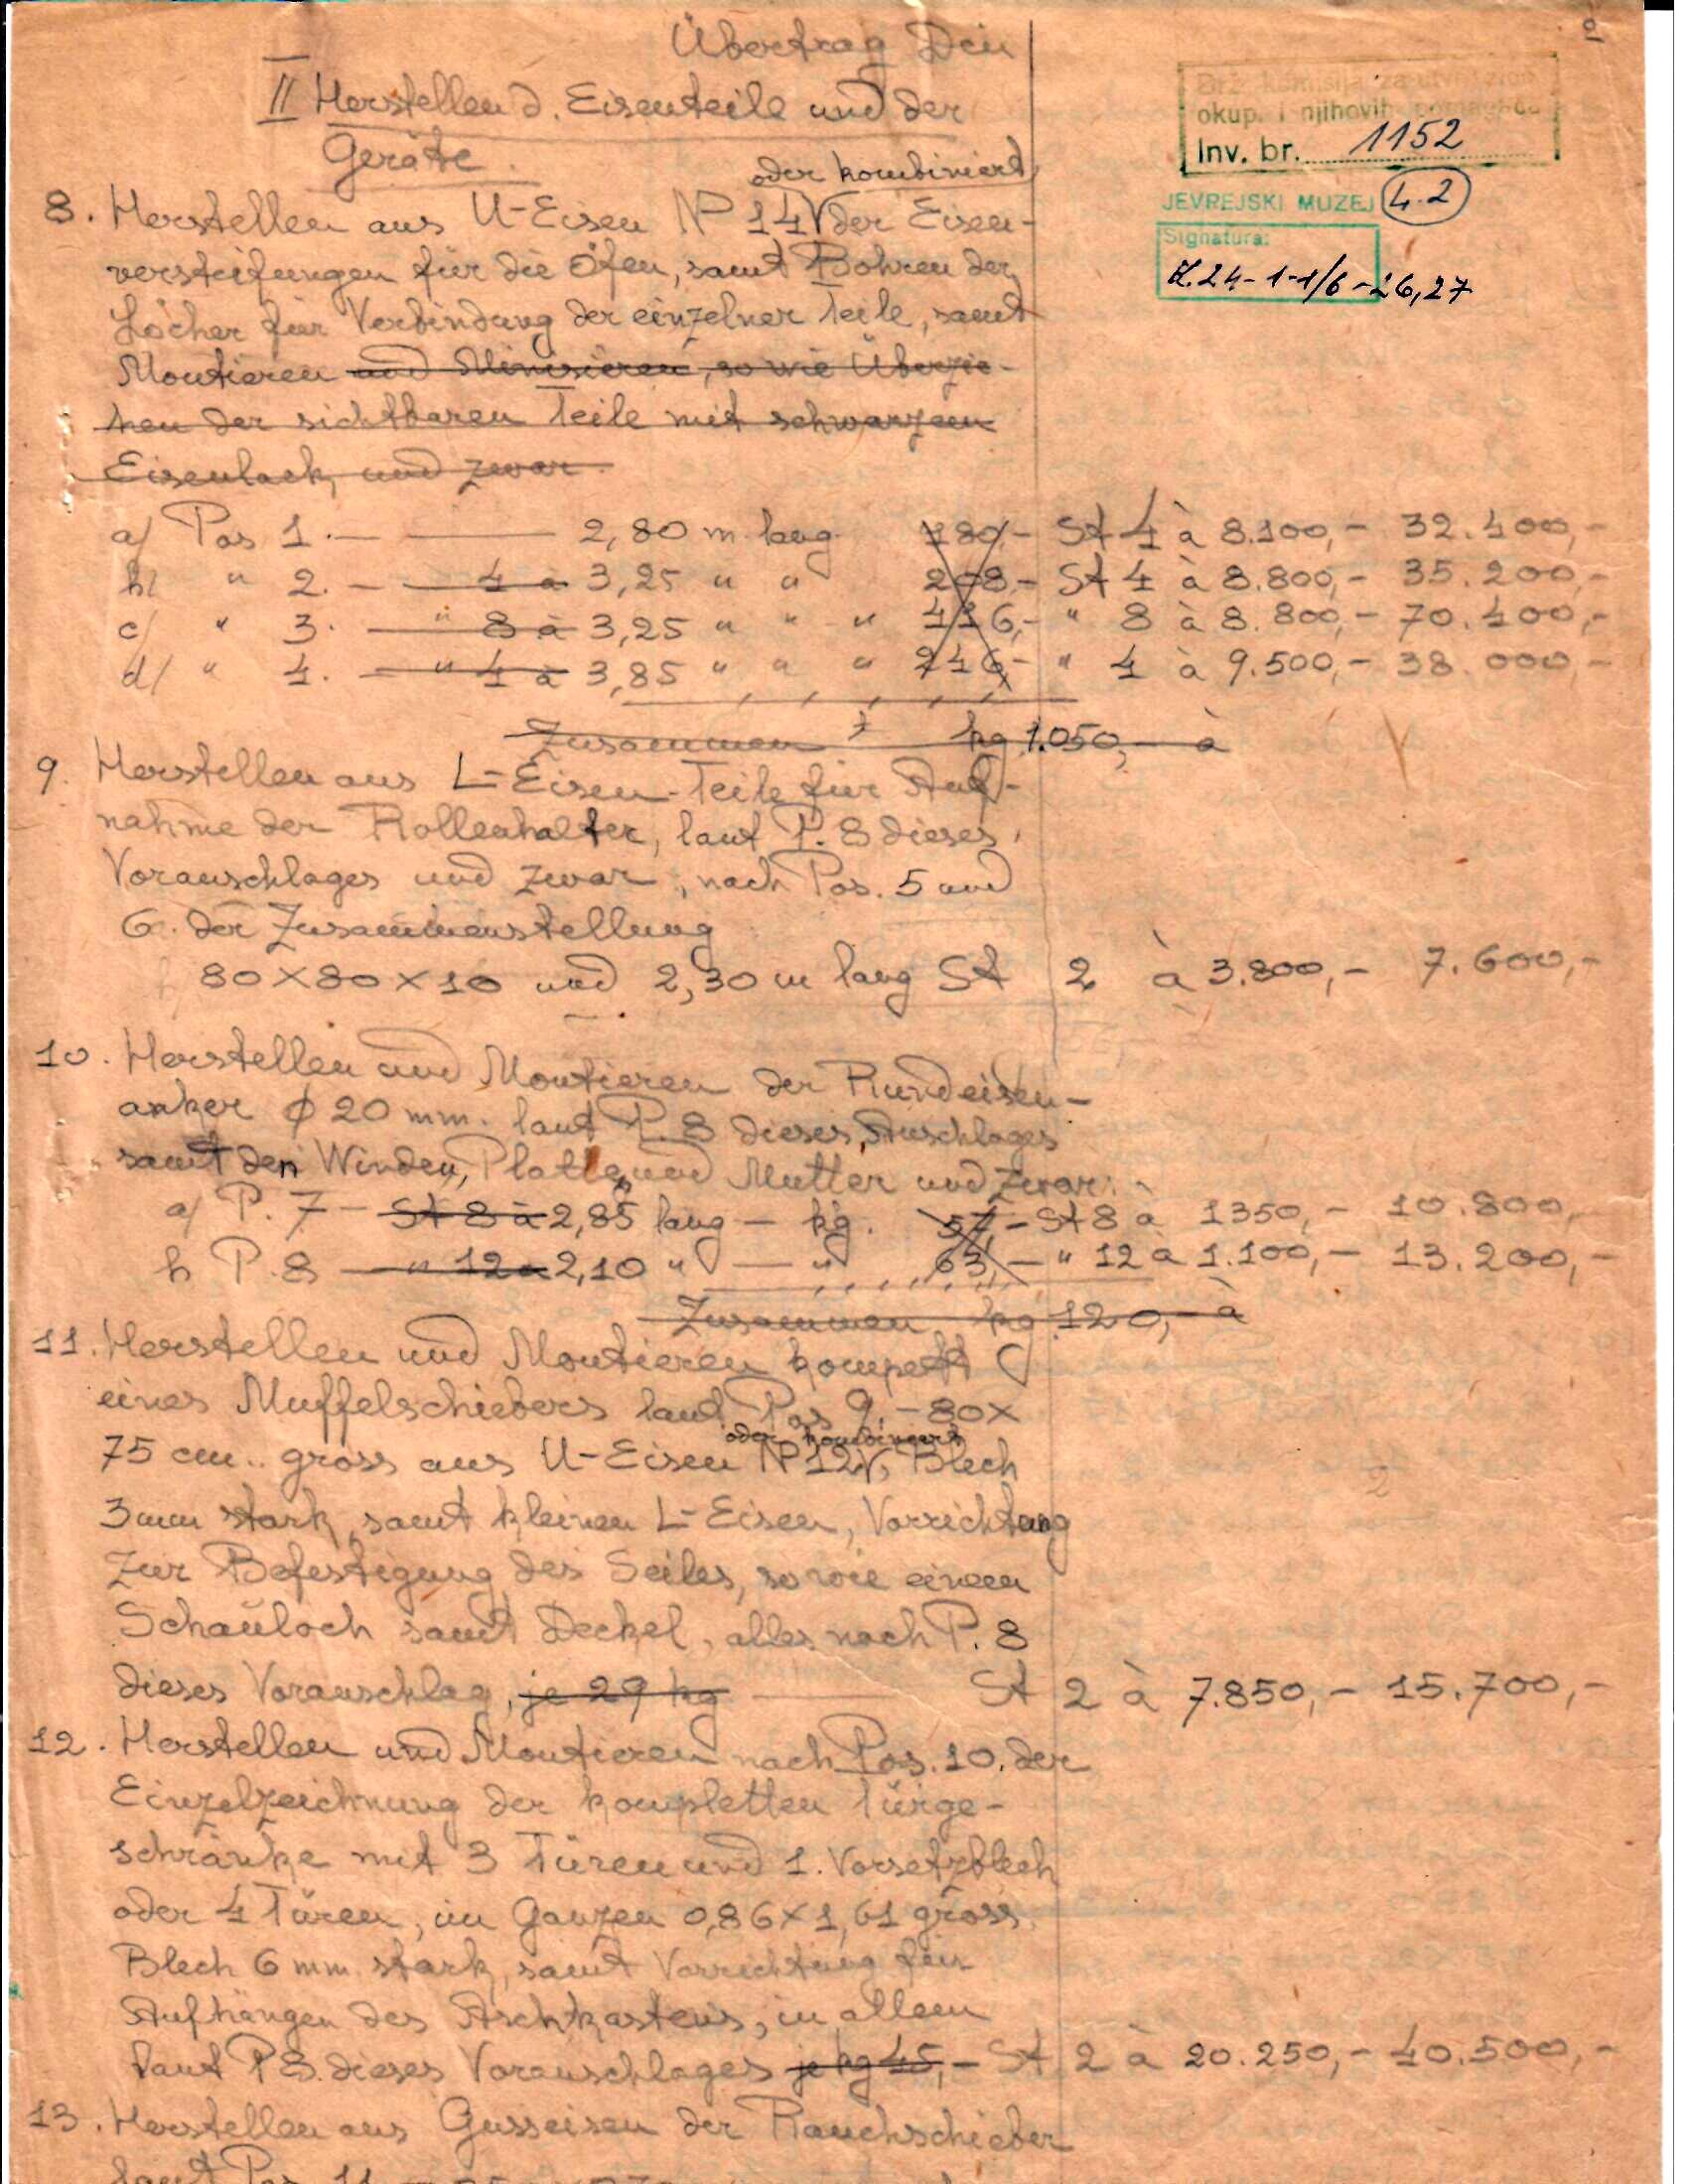 2
Übertrag Din
II Herstellen d. Eisenteile und der
Geräte.
Drž. komisija za utvr. zloč.
okup. i njihovih pomagača
Inv. br. 1152
JEVREJSKI MUZEJ 4.2
Signatura:
K.24-1-1/6-26,27
oder kombiniert
8. Herstellen aus U-Eisen NP 14 der Eisen-
versteifungen für die Öfen, samt Bohren der
Löcher für Verbindung der einzelner Teile, samt
Montieren und Minisieren, so wie Überzie-
hen der sichtbaren Teile mit schwarzem
Eisenlack, und zwar.
a/ Pos 1.— —— 2,80 m lang. 180,- St 4 à 8.100,- 32.400,-
b/ " 2.— 4 à 3,25 " " 208,- St 4 à 8.800,- 35.200,-
c/ " 3. — " 8 à 3,25 " " " 416,- " 8 à 8.800,- 70.400,-
d/ " 4. — " 4 à 3,85 " " " 246,- " 4 à 9.500,- 38.000,-
Zusammen kg 1.050,- à
9. Herstellen aus L-Eisen-Teile für Auf-
nahme der Rollenhalter, laut P. 8 dieses
Voranschlages und zwar, nach Pos. 5 und
6. der Zusammenstellung
80×80×10 und 2,30 m lang St 2 à 3.800,- 7.600,-
10. Herstellen und Montieren der Rundeisen-
anker ϕ 20 mm. laut P. 8 dieses Anschlages
samt den Winden, Platte und Mutter und zwar:
a/ P. 7 - St 8 à 2,85 lang — kg. 57,- St 8 à 1350,- 10.800,-
b P. 8 — " 12 à 2,10 " — " 63,- " 12 à 1.100,- 13.200,-
Zusammen kg 120,- à
11. Herstellen und Montieren kompett
eines Muffelschiebers laut Pos 9. - 80×
oder kombiniert
75 cm.. gross aus U-Eisen NP 12, Blech
3 mm stark, samt kleinen L-Eisen, Vorrichtung
zur Befestigung des Seiles, so wie einem
Schauloch samt Deckel, alles nach P. 8
dieses Voranschlag, je 29 kg —— St 2 à 7.850,- 15.700,-
12. Herstellen und Montieren nach Pos. 10. der
Einzelzeichnung der kompletten Türge-
schränke mit 3 Türen und 1. Vorsetzblech
oder 4 Türen, im Ganzen 0,86×1,61 gross
Blech 6 mm stark, samt Vorrichtung für
Aufhängen des Aschkastens, in allem
laut P 8. dieses Voranschlages je kg 45,- St 2 à 20.250,- 40.500,-
13. Herstellen aus Gusseisen der Rauchschieber
laut Pos. 11